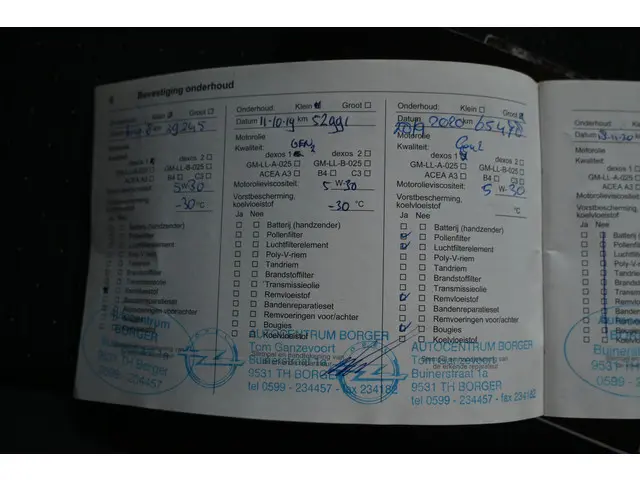 Bevestiging onderhoud
Onderhoud: Klein Groot
Datum km 29345
Motorolie
Kwaliteit:
dexos 1 dexos 2
GM-LL-A-025 GM-LL-B-025
ACEA A3 B4 C3
Motorolieviscositeit: 5 W-30
Vorstbescherming, koelvloeistof -30 °C
Ja Nee
Batterij (handzender)
Pollenfilter
Luchtfilterelement
Poly-V-riem
Tandriem
Brandstoffilter
Transmissieolie
Remvloeistof
Bandenreparatieset
Remvoeringen voor/achter
Bougies
Koelvloeistof
BORGER
9531 TH BORGER
tel 0599 - 234457
Onderhoud: Klein Groot
Datum 11-10-19 km 52991
Motorolie
Kwaliteit: GEN2
dexos 1 dexos 2
GM-LL-A-025 GM-LL-B-025
ACEA A3 B4 C3
Motorolieviscositeit:
5 W-30
Vorstbescherming,
koelvloeistof -30 °C
Ja Nee
Batterij (handzender)
Pollenfilter
Luchtfilterelement
Poly-V-riem
Tandriem
Brandstoffilter
Transmissieolie
Remvloeistof
Bandenreparatieset
Remvoeringen voor/achter
Bougies
Koelvloeistof
AUTOCENTRUM BORGER
Tom Ganzevoort
Buinerstraat 1a
9531 TH BORGER
tel 0599 - 234457 - fax 234182
Onderhoud: Klein Groot
Datum 2020 km 65478
Motorolie
Kwaliteit:
dexos 1 dexos 2
GM-LL-A-025 GM-LL-B-025
ACEA A3 B4 C3
Motorolieviscositeit:
5 W-30
Vorstbescherming,
koelvloeistof °C
Ja Nee
Batterij (handzender)
Pollenfilter
Luchtfilterelement
Poly-V-riem
Tandriem
Brandstoffilter
Transmissieolie
Remvloeistof
Bandenreparatieset
Remvoeringen voor/achter
Bougies
Koelvloeistof
AUTOCENTRUM BORGER
Tom Ganzevoort
de erkende reparateur
Buinerstraat 1a
9531 TH BORGER
tel 0599 - 234457 - fax 234182
Onderhoud:
Datum
Motorolie
Kwaliteit:
GM-LL-A
ACEA
Motorolieviscos
Vorstbescherm
koelvloeistof
Ja Nee
Batterij (h
Pollenfilt
Luchtfilt
Poly-V-
Tandrie
Brands
Transm
Remvl
Band
Rem
Bou
9531 TH B
tel 0599 - 2